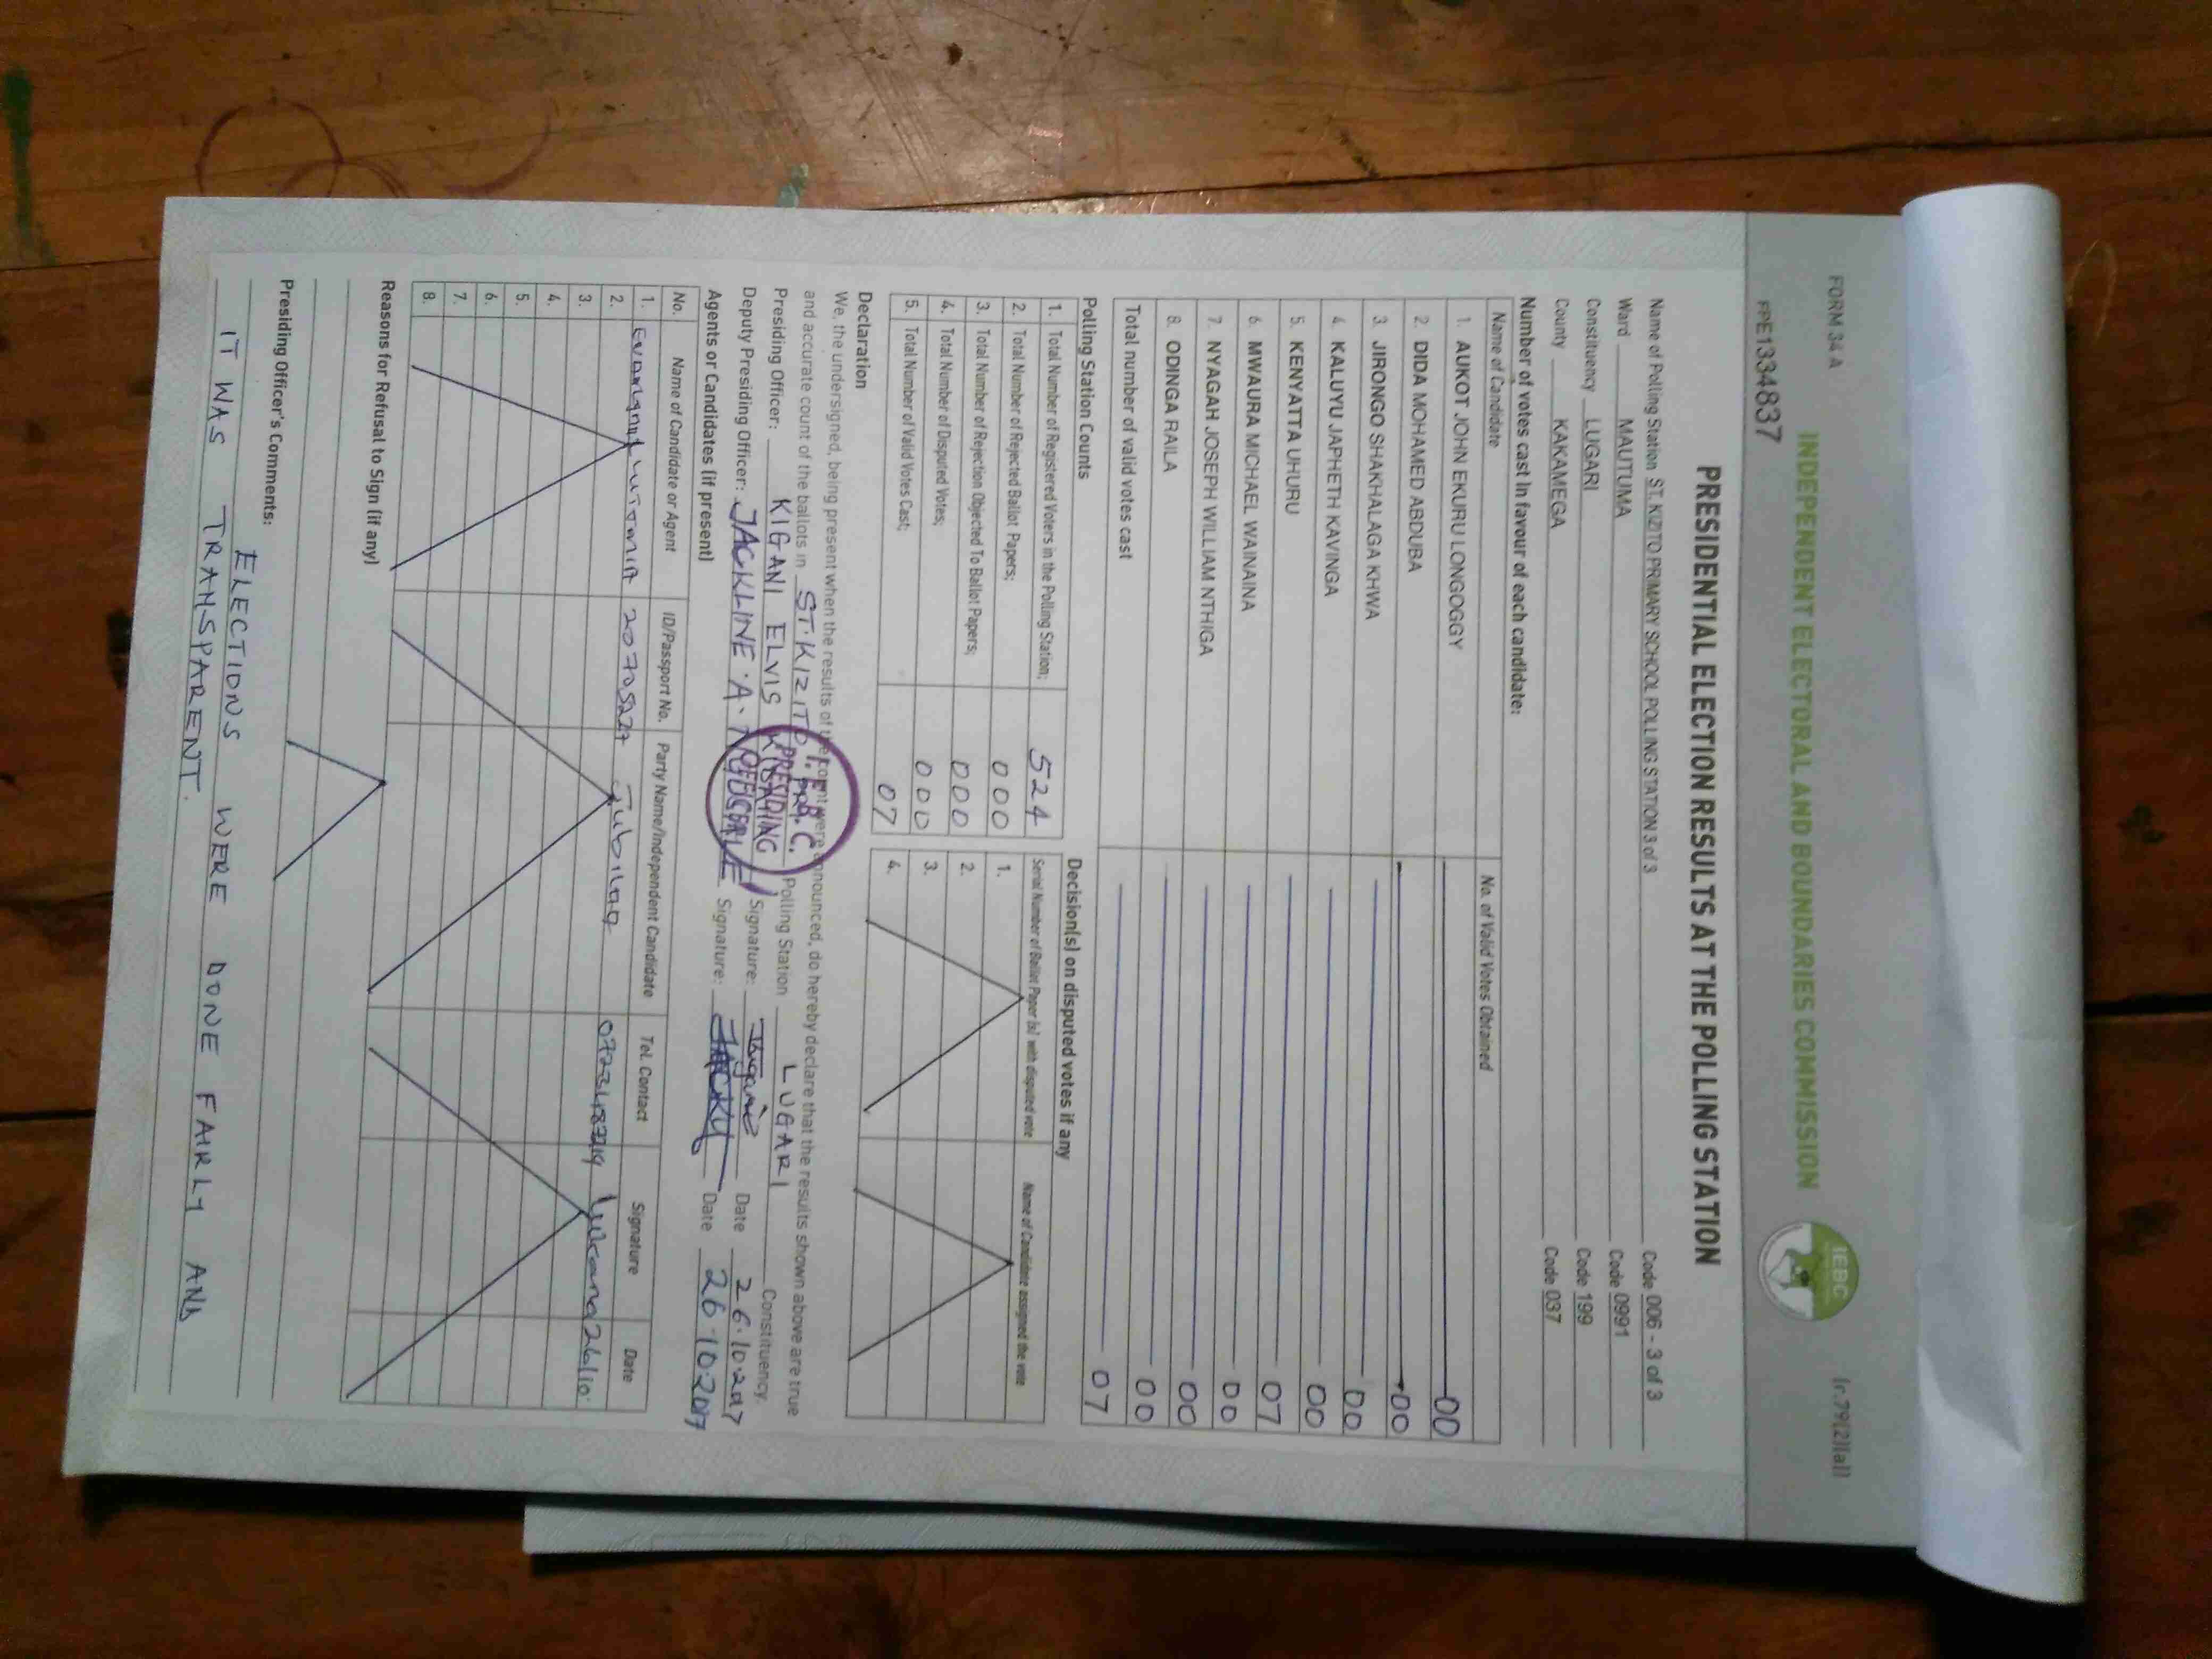 FORM 34 A [r.79(2)(a)]
INDEPENDENT ELECTORAL AND BOUNDARIES COMMISSION
IEBC
PPE1334837
PRESIDENTIAL ELECTION RESULTS AT THE POLLING STATION
Name of Polling Station ST. KIZITO PRIMARY SCHOOL POLLING STATION 3 of 3 Code 006 - 3 of 3
Ward MAUTUMA Code 0991
Constituency LUGARI Code 199
County KAKAMEGA Code 037
Number of votes cast in favour of each candidate:
Name of Candidate No. of Valid Votes Obtained
1. AUKOT JOHN EKURU LONGOGGY 00
2. DIDA MOHAMED ABDUBA 00
3. JIRONGO SHAKHALAGA KHWA 00
4. KALUYU JAPHETH KAVINGA 00
5. KENYATTA UHURU 07
6. MWAURA MICHAEL WAINAINA 00
7. NYAGAH JOSEPH WILLIAM NTHIGA 00
8. ODINGA RAILA 00
Total number of valid votes cast 07
Polling Station Counts
1. Total Number of Registered Voters in the Polling Station; 524
2. Total Number of Rejected Ballot Papers; 000
3. Total Number of Rejection Objected To Ballot Papers; 000
4. Total Number of Disputed Votes; 000
5. Total Number of Valid Votes Cast; 07
Decision(s) on disputed votes if any
Serial Number of Ballot Paper (s) with disputed vote Name of Candidate assigned the vote
1.
2.
3.
4.
Declaration
We, the undersigned, being present when the results of the count were announced, do hereby declare that the results shown above are true
and accurate count of the ballots in ST. KIZITO Polling Station LUGARI Constituency.
Presiding Officer: KIGANI ELVIS Signature: Date 26.10.2017
Deputy Presiding Officer: JACKLINE .A. Signature: JACKY Date 26.10.2017
I.E.B.C.
PRESIDING
OFFICER
Agents or Candidates (if present)
No. Name of Candidate or Agent ID/Passport No. Party Name/Independent Candidate Tel. Contact Signature Date
1. 20705227 Jubilaq 26/10
2.
3.
4.
5.
6.
7.
8.
Reasons for Refusal to Sign (if any)
Presiding Officer's Comments:
ELECTIONS WERE DONE FAIRLY AND
IT WAS TRANSPARENT.